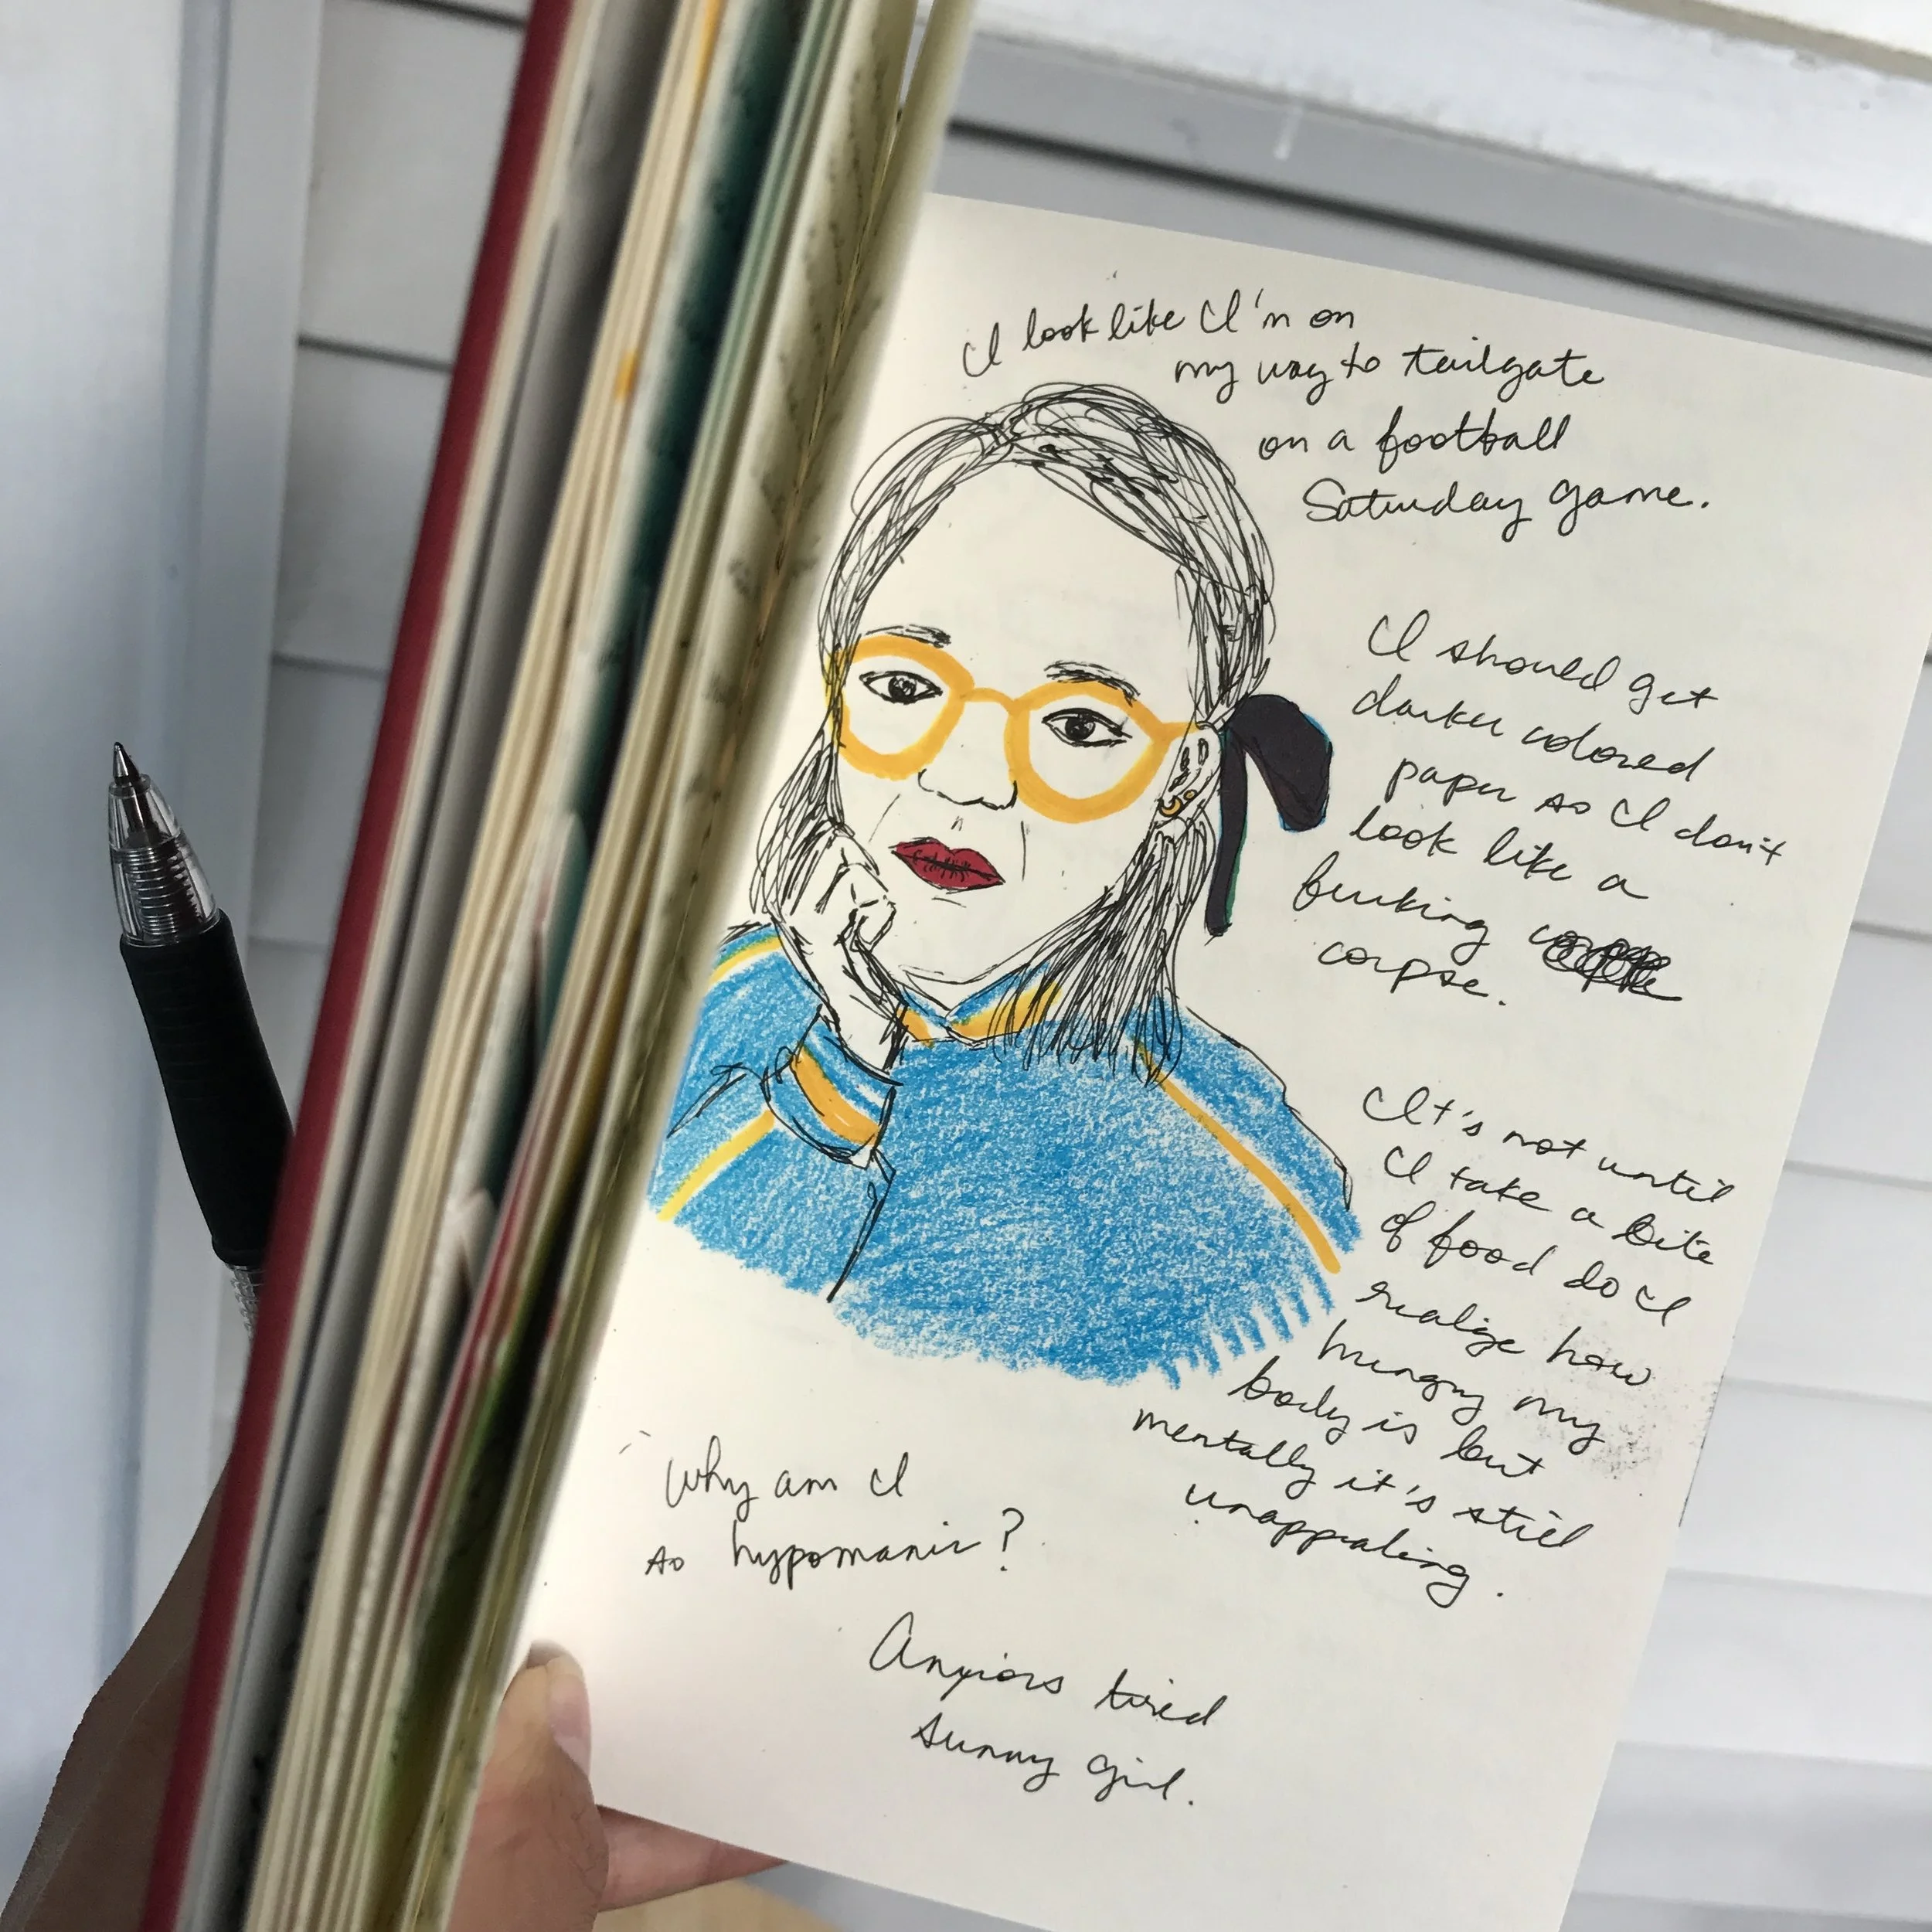 I look like I'm on
my way to tailgate
on a football
Saturday game.
I should get
darker colored
paper so I don't
look like a
fucking
corpse.
It's not until
I take a bite
of food do I
realize how
hungry my
body is but
mentally it's still
unappealing.
Why am I
so hypomanic?
Anxious tired
sunny girl.